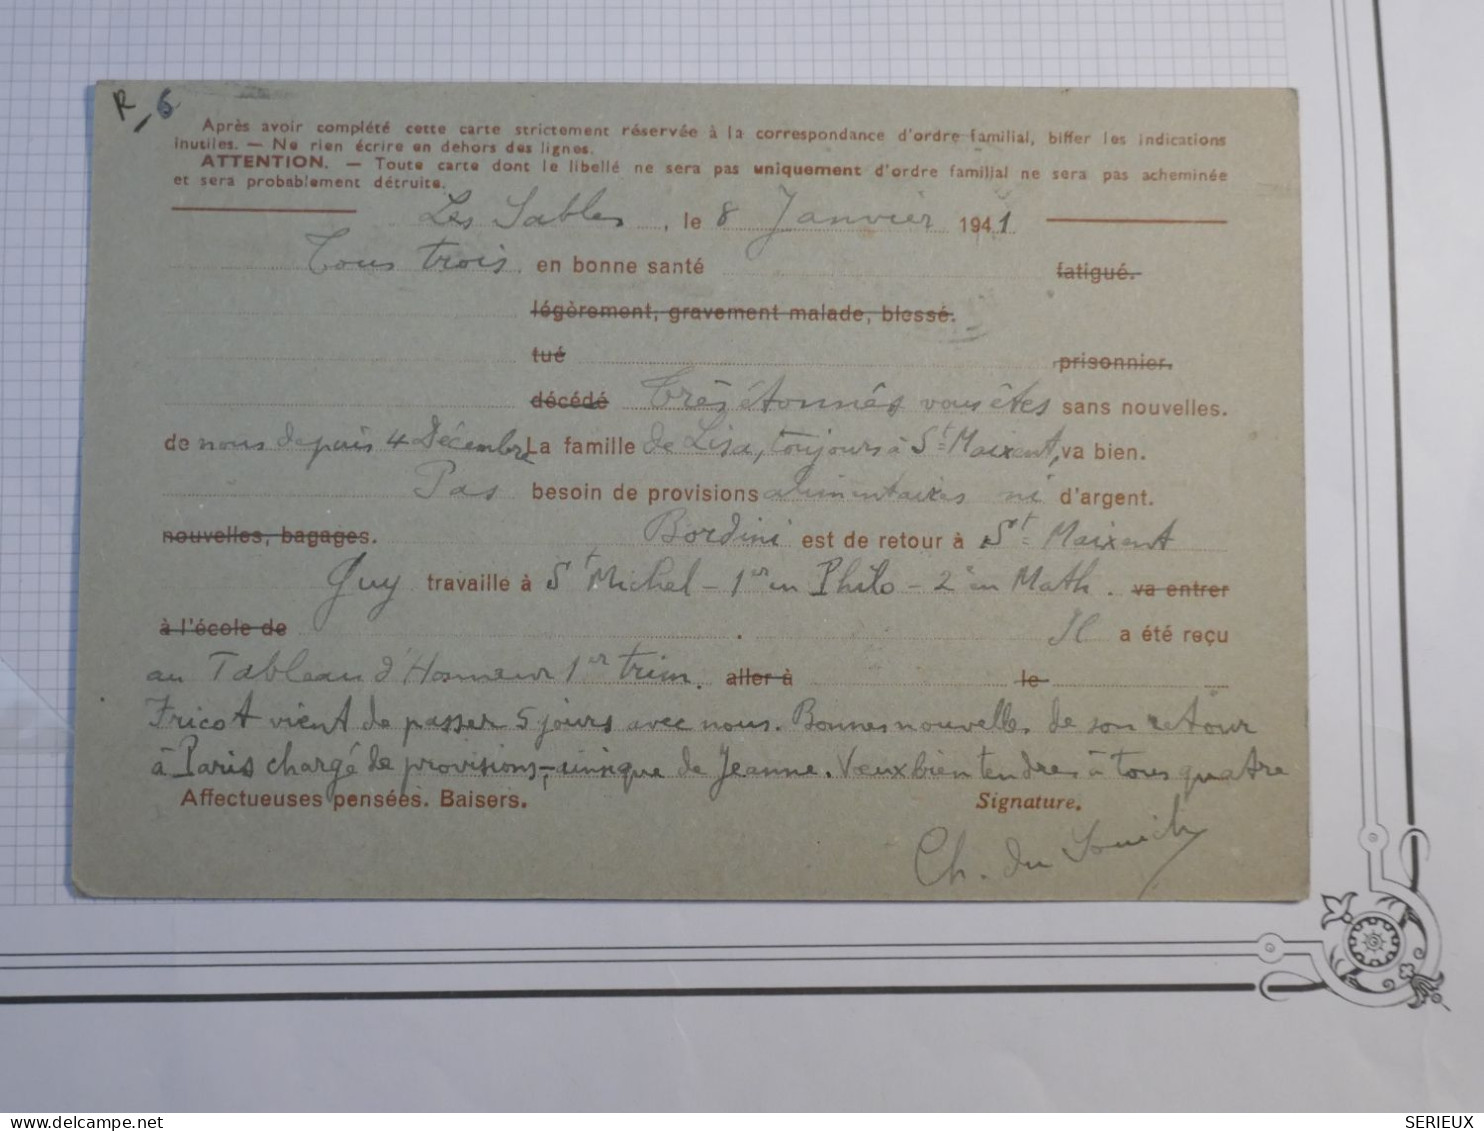 R 6
Après avoir complété cette carte strictement réservée à la correspondance d'ordre familial, biffer les indications
inutiles. — Ne rien écrire en dehors des lignes.
ATTENTION. — Toute carte dont le libellé ne sera pas uniquement d'ordre familial ne sera pas acheminée
et sera probablement détruite.
Les Sables, le 8 Janvier 1941
Tous trois en bonne santé fatigué.
légèrement, gravement malade, blessé.
tué prisonnier.
décédé Très étonnés vous êtes sans nouvelles.
de nous depuis 4 Décembre La famille de Lisa, toujours à St Maixent, va bien.
Pas besoin de provisions alimentaires ni d'argent.
nouvelles, bagages. Bordini est de retour à St Maixent
Guy travaille à St Michel - 1er en Philo - 2e en Math. va entrer
à l'école de . Il a été reçu
au Tableau d'Honneur 1er trim. aller à le
Fricot vient de passer 5 jours avec nous. Bonnes nouvelles de son retour
à Paris chargé de provisions, de Jeanne. Voeux bien tendres à tous quatre
Affectueuses pensées. Baisers. Signature.
Ch. du Souich
SERIEUX